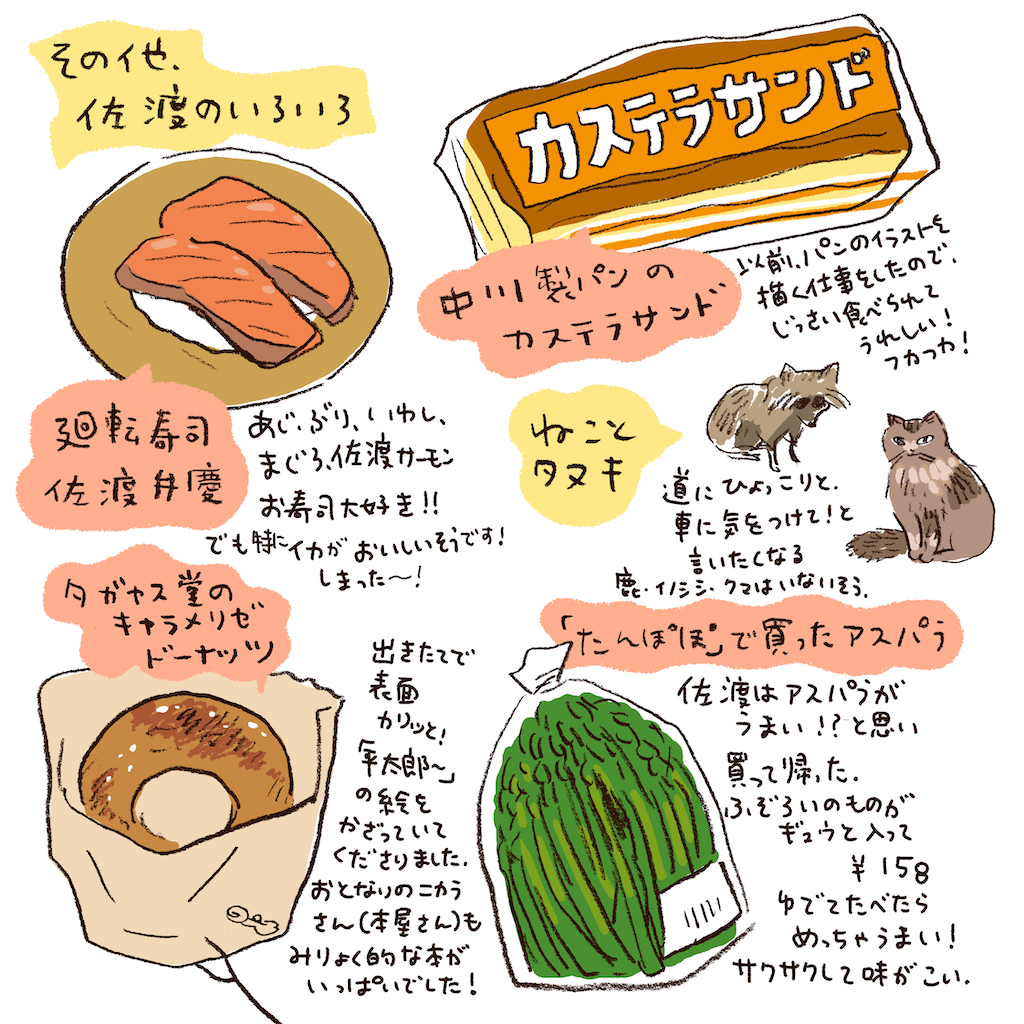 その他、
佐渡のいろいろ
カステラサンド
中川製パンの
カステラサンド
以前、パンのイラストを
描く仕事をしたので、
じっさい食べられて
うれしい!
フカフカ!
廻転寿司
佐渡弁慶
あじ、ぶり、いわし、
まぐろ、佐渡サーモン
お寿司大好き!!
でも特にイカが おいしいそうです!
しまった〜!
ねこと
タヌキ
道にひょっこりと、
車に気をつけて!と
言いたくなる
鹿・イノシシ・クマはいないそう。
タガヤス堂の
キャラメリゼ
ドーナッツ
出きたてで
表面
カリッと!
「年太郎〜」
の絵を
かざっていて
くださりました。
おとなりのニカラ
さん(本屋さん)も
みりょく的な本が
いっぱいでした!
「たんぽぽ」で買ったアスパラ
佐渡はアスパラが
うまい!?と思い
買って帰った。
ふぞろいのものが
ギュウと入って
¥158
ゆでてたべたら
めっちゃうまい!
サクサクして味がこい。